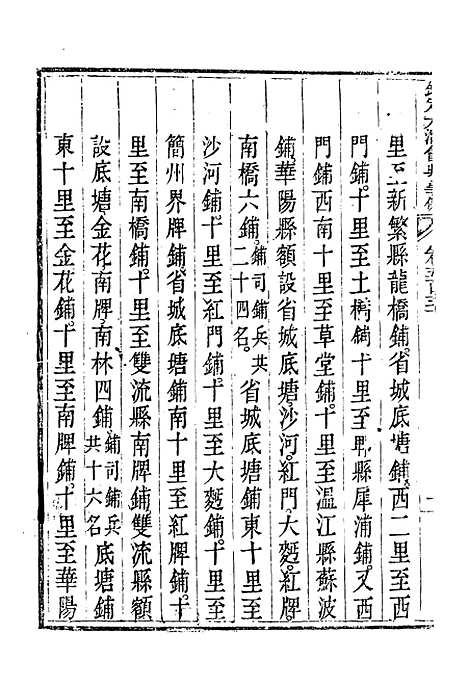 欽定大清會典事例 卷五百三
里至新繁縣龍橋鋪。省城底塘鋪。西二里至西
門鋪。十里至土橋鋪。十里至郫縣犀浦鋪。又西
門鋪西南十里至草堂鋪。十里至溫江縣蘇波
鋪。華陽縣額設省城底塘。沙河。紅門。大麪。紅牌。
南橋六鋪。鋪司鋪兵共二十四名。省城底塘鋪東十里至
沙河鋪。十里至紅門鋪。十里至大麪鋪。十里至
簡州界牌鋪。省城底塘鋪南十里至紅牌鋪。十
里至南橋鋪。十里至雙流縣南牌鋪。雙流縣額
設底塘。金花。南牌。南林四鋪。鋪司鋪兵共十六名。底塘鋪
東十里至金花鋪。十里至南牌鋪。十里至華陽